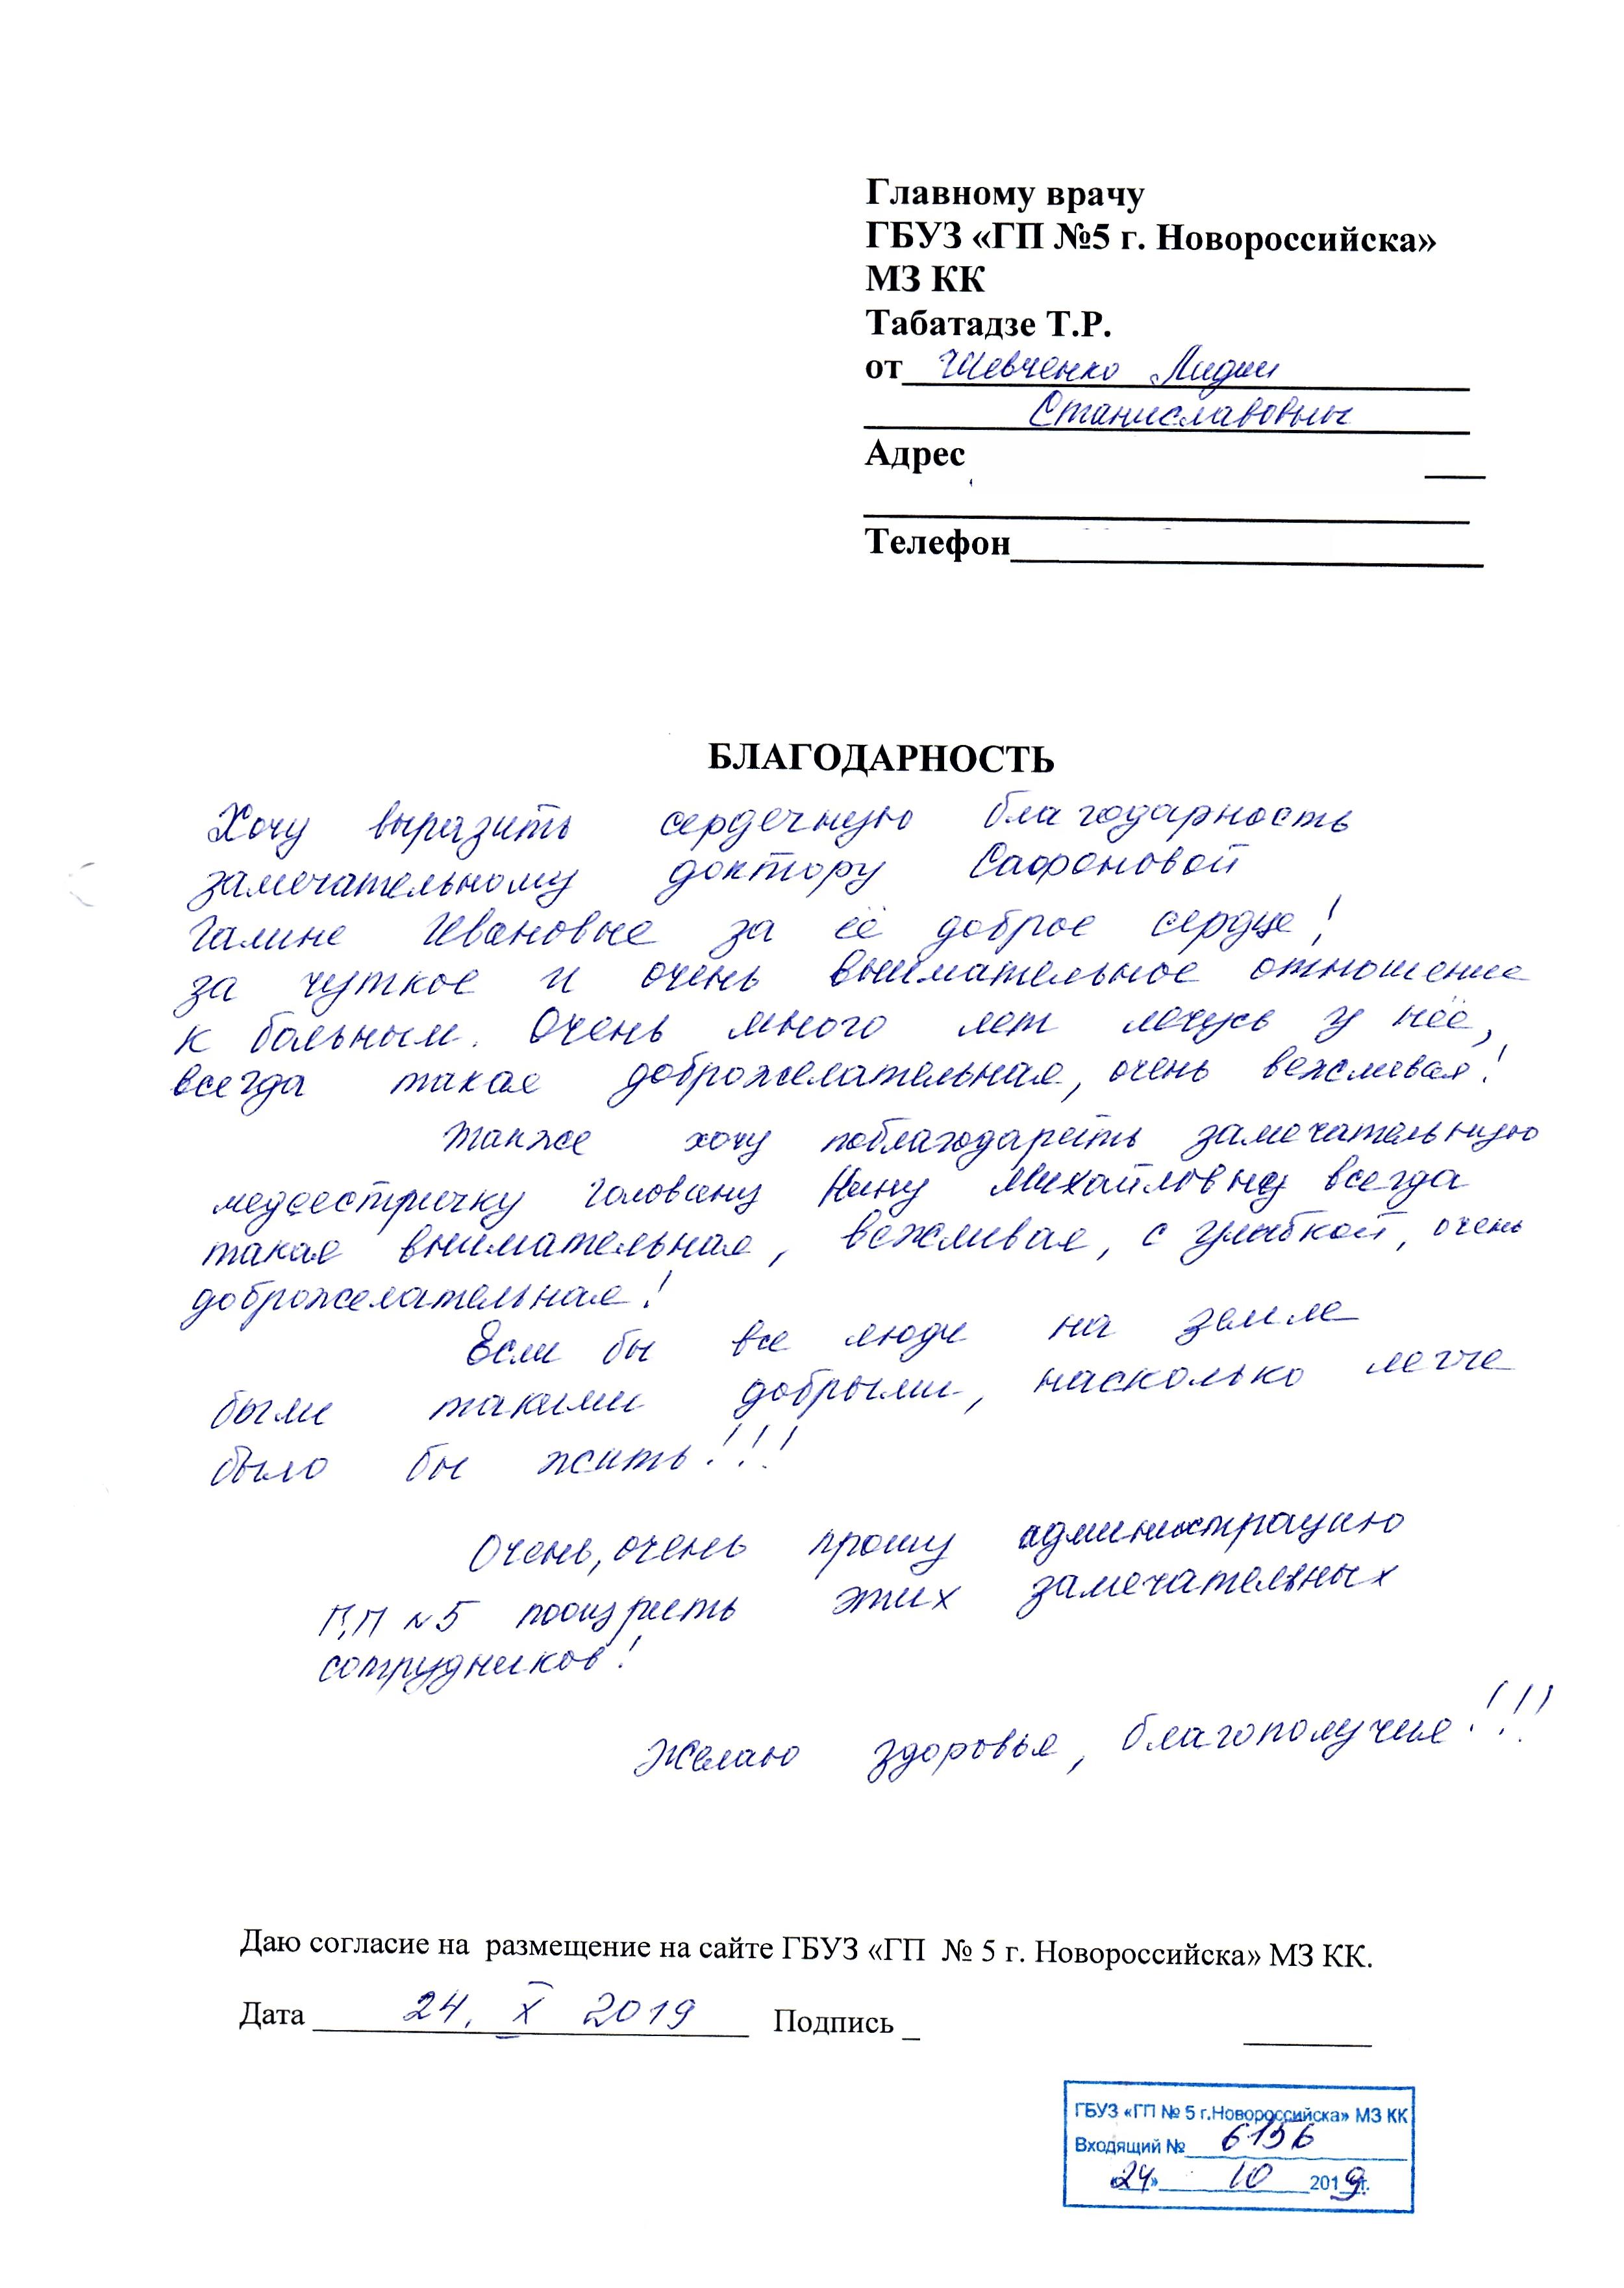 Главному врачу
ГБУЗ «ГП №5 г. Новороссийска»
МЗ КК
Табатадзе Т.Р.
от Шевченко Лидии
Станиславовны
Адрес
Телефон
БЛАГОДАРНОСТЬ
Хочу выразить сердечную благодарность
замечательному доктору Сафоновой
Галине Ивановне за её доброе сердце!
за чуткое и очень внимательное отношение
к больным. Очень много лет лечусь у неё,
всегда такая доброжелательная, очень вежливая!
Также хочу поблагодарить замечательную
медсестричку Головану Нину Михайловну всегда
такая внимательная, вежливая, с улыбкой, очень
доброжелательная!
Если бы все люди на земле
были такими добрыми, насколько легче
было бы жить!!!
Очень, очень прошу администрацию
ГП №5 поощрить этих замечательных
сотрудников!
Желаю здоровья, благополучия!!!
Даю согласие на размещение на сайте ГБУЗ «ГП № 5 г. Новороссийска» МЗ КК.
Дата 24. X 2019 Подпись
ГБУЗ «ГП № 5 г.Новороссийска» МЗ КК
Входящий № 6156
«24» 10 2019г.